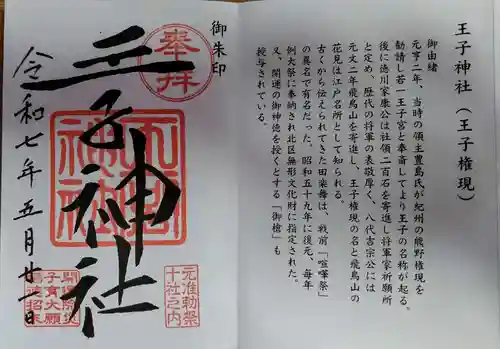 王子神社（王子権現）
御由緒
元亨二年、当時の領主豊島氏が紀州の熊野権現を
勧請し若一王子宮と奉斎してより王子の名称が起る。
後に徳川家康公は社領二百石を寄進し将軍家祈願所
と定め、歴代の将軍の表敬厚く、八代吉宗公には
元文二年飛鳥山を寄進し、王子権現の名と飛鳥山の
花見は江戸名所として知られる。
古くから伝えられてきた田楽舞は、戦前「喧嘩祭」
の異名で有名だった。昭和五十九年に復元、毎年
例大祭に奉納され北区無形文化財に指定された。
又、開運の御神徳を授くとする「御槍」も
授与されている。
御朱印
奉拝
王子神社
王子神社
元准勅祭
十社之内
開運除災
子育大願
令和七年五月廿一日